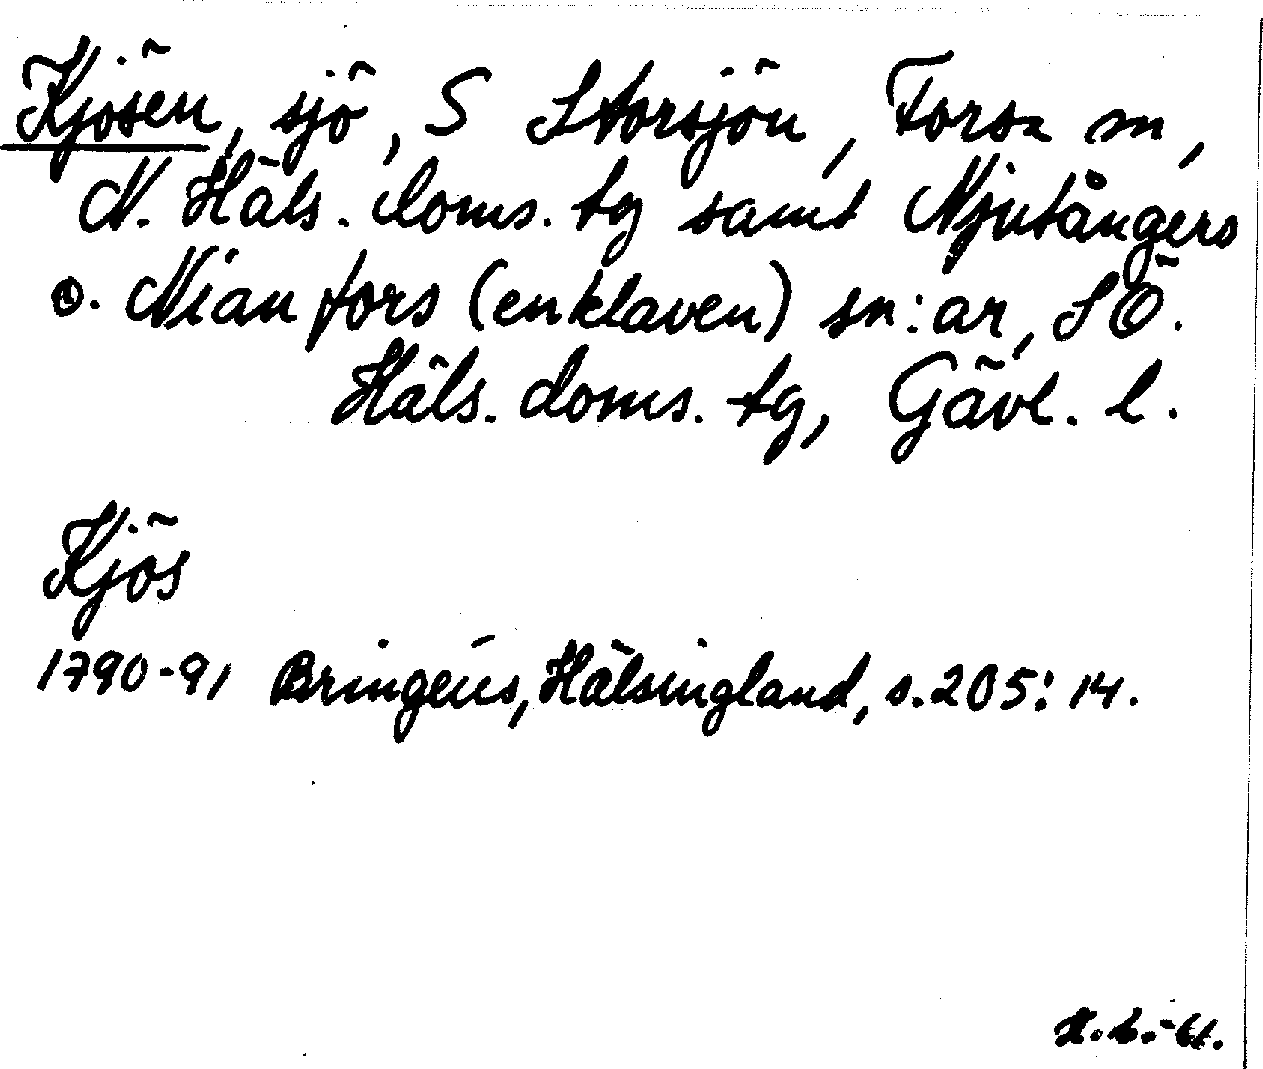 Kjösen, sjö, S Storsjön, Forsa sn,
N. Häls. doms. tg samt Njutångers
o. Nianfors (enklaven) sn:ar, SÖ.
Häls. doms. tg, Gävl. l.
Kjös
1790-91 Bringéus, Hälsingland, s. 205: 14.